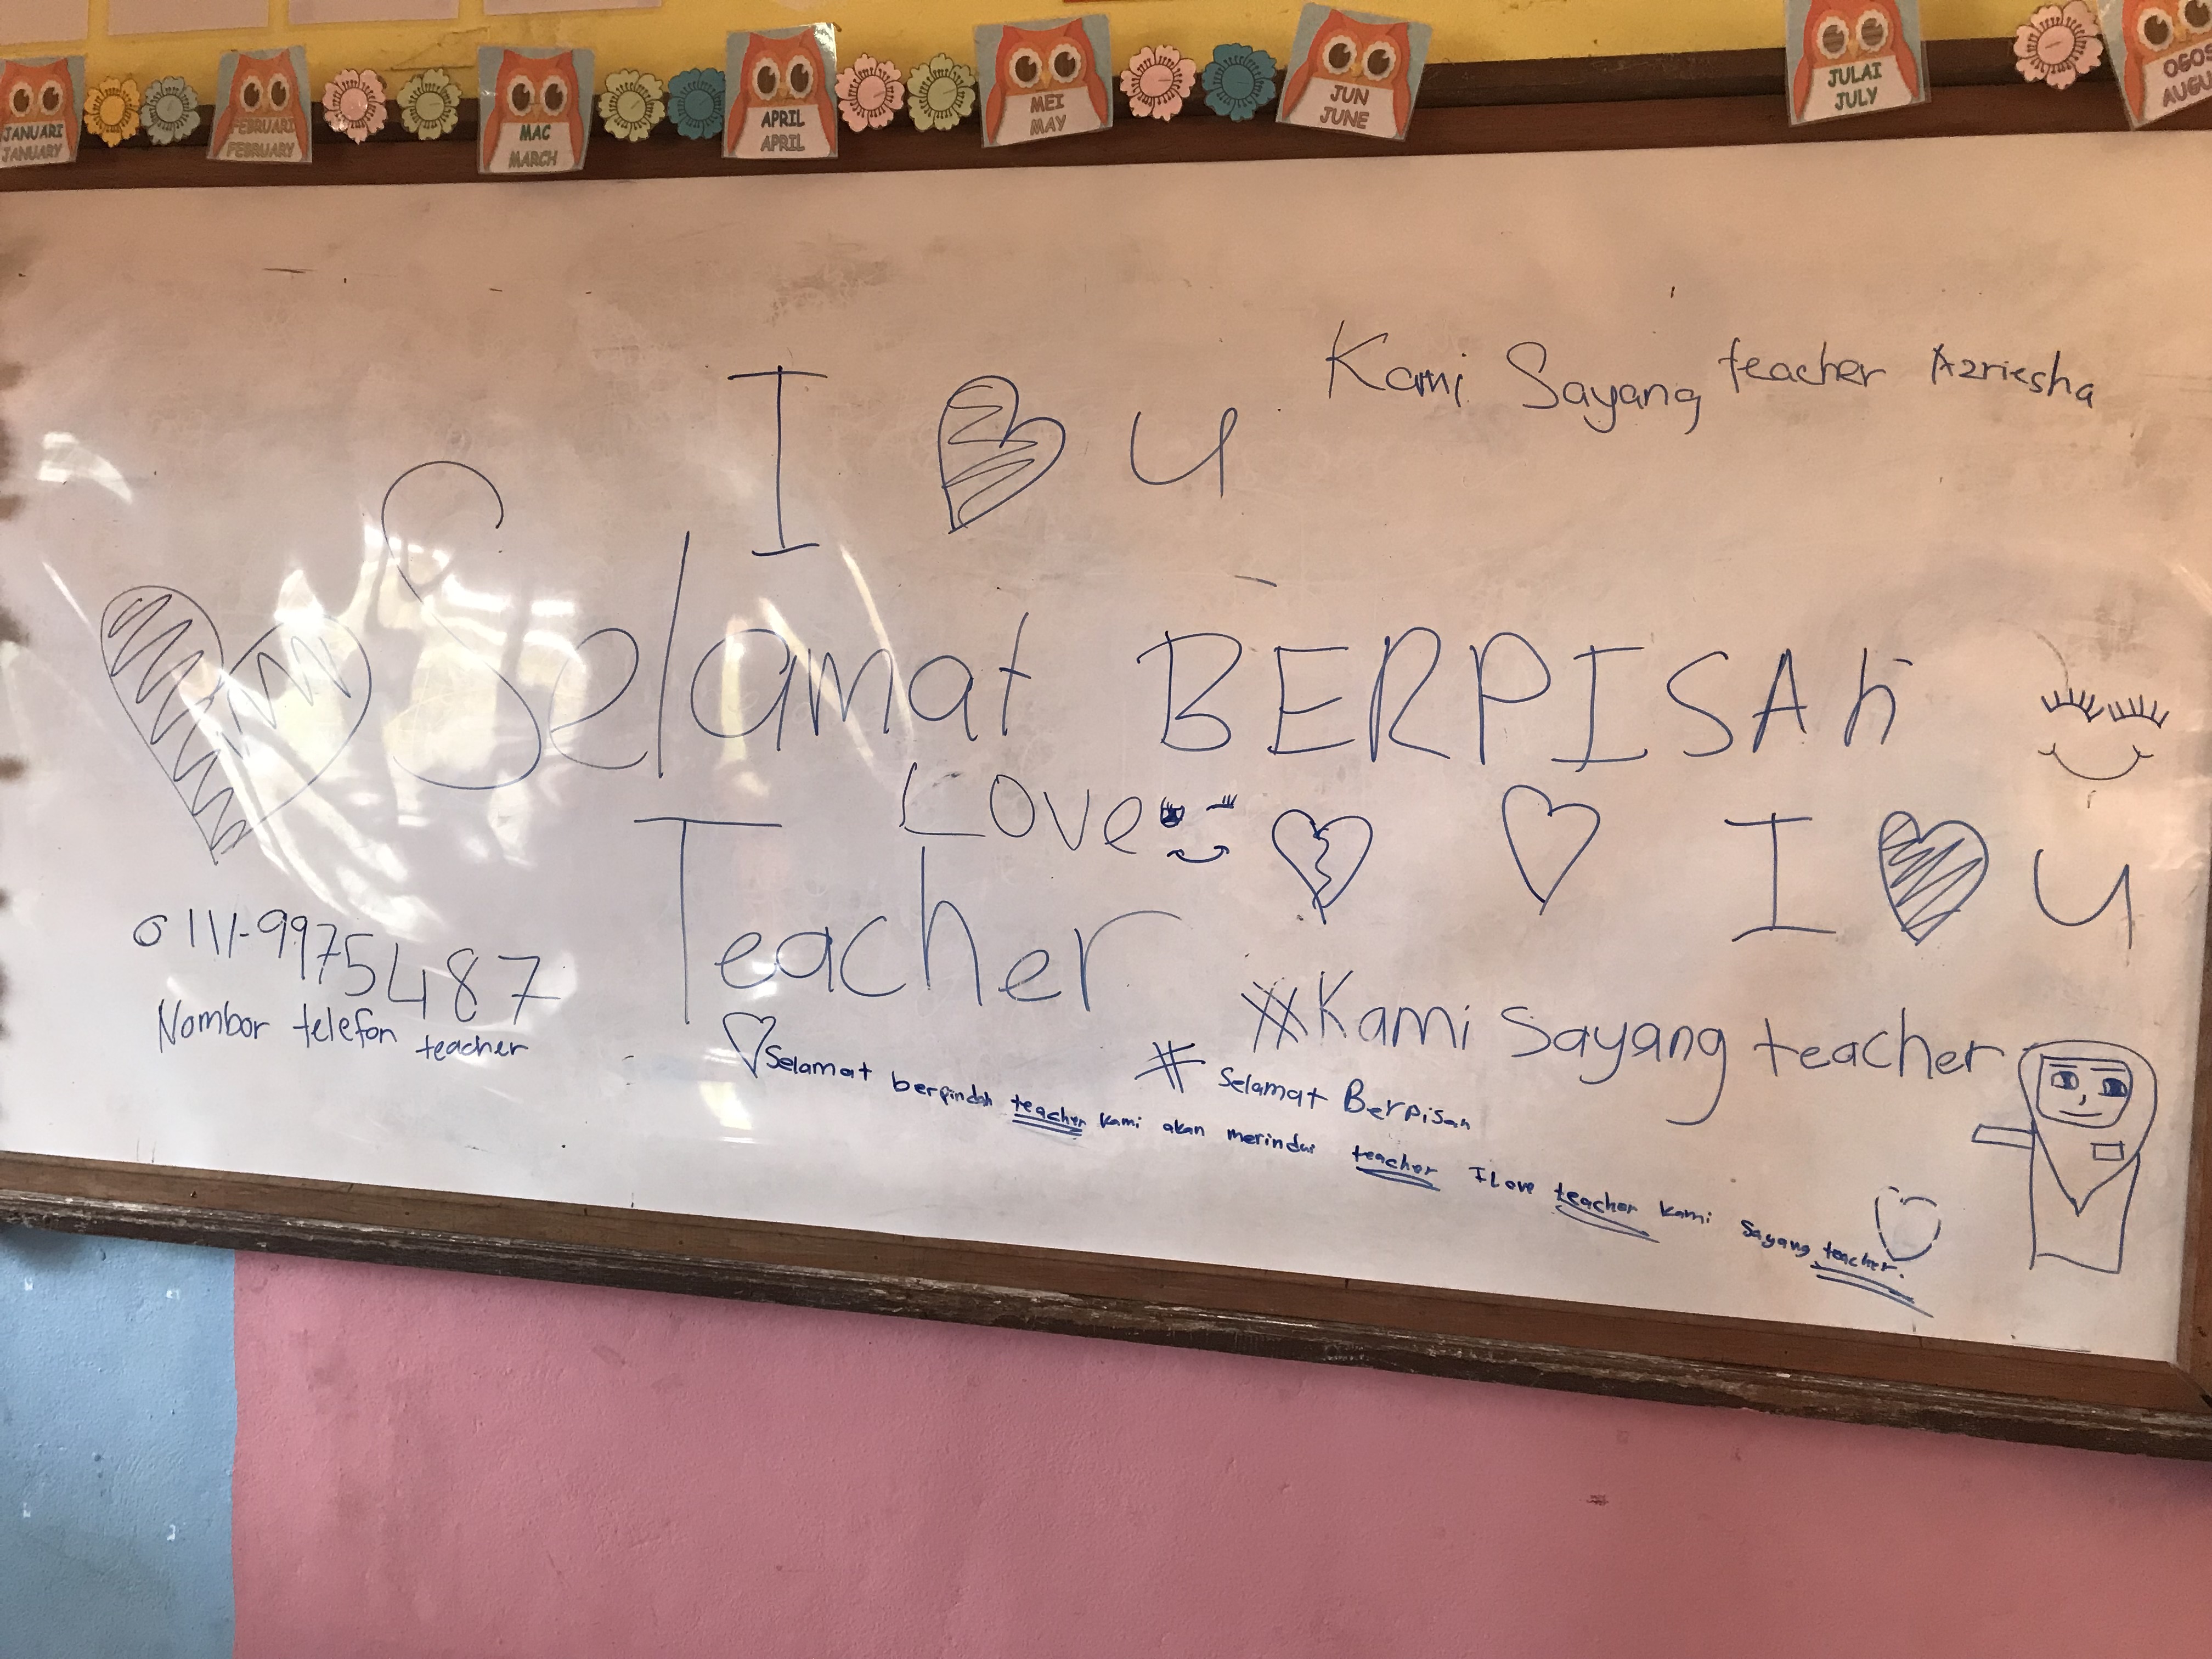 JANUARI
JANUARY
FEBRUARI
FEBRUARY
MAC
MARCH
APRIL
APRIL
MEI
MAY
JUN
JUNE
JULAI
JULY
OGOS
AUGU
Kami Sayang teacher Azriesha
I u
Selamat BERPISAh
Love
Teacher
I u
0111-9975487
Nombor telefon teacher
#Kami Sayang teacher
# Selamat Berpisah
Selamat berpindah teacher kami akan merindui teacher I Love teacher kami Sayang teacher.